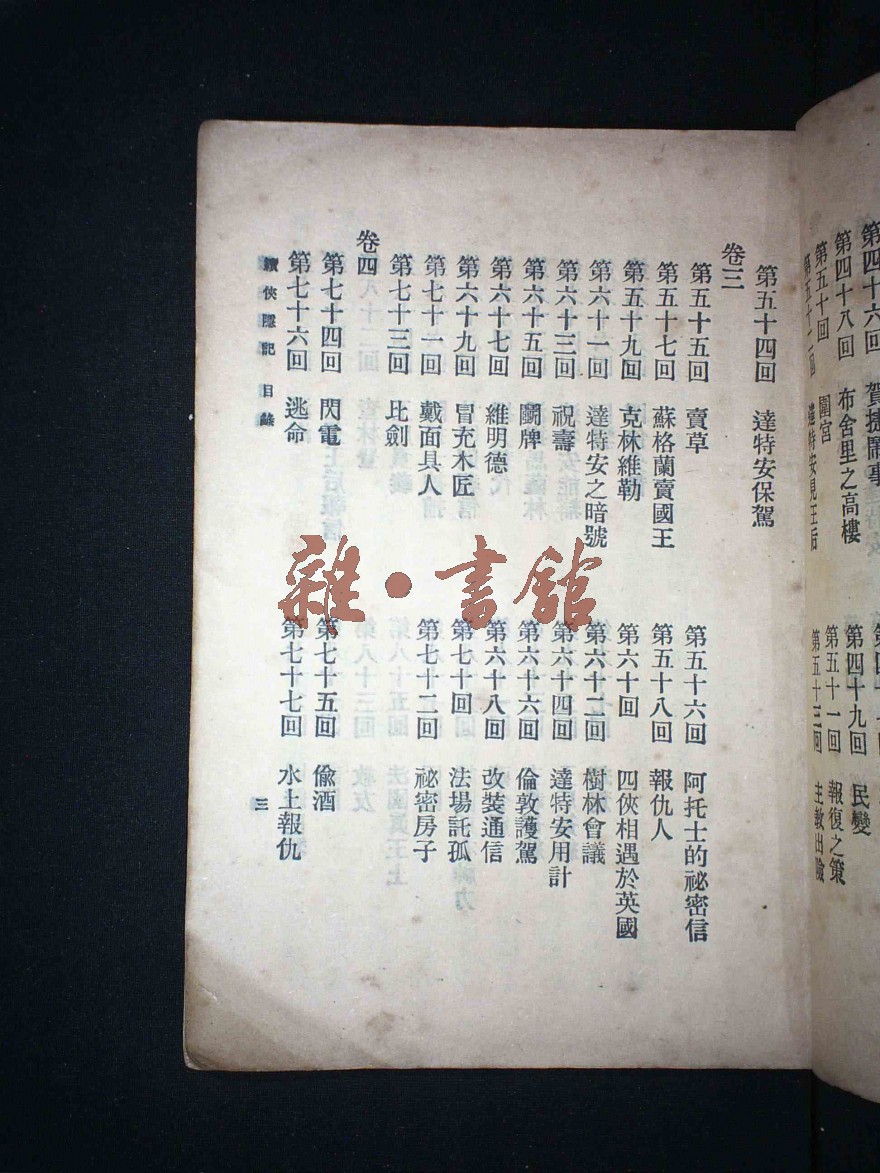 第四十六回　賀捷鬧事
第四十八回　布舍里之高樓
第四十九回　民變
第五十回　圍宮
第五十一回　報復之策
第五十二回　達特安見王后
第五十三回　主教出險
第五十四回　達特安保駕
卷三
第五十五回　賣草
第五十六回　阿托士的祕密信
第五十七回　蘇格蘭賣國王
第五十八回　報仇人
第五十九回　克林維勒
第六十回　四俠相遇於英國
第六十一回　達特安之暗號
第六十二回　樹林會議
第六十三回　祝壽
第六十四回　達特安用計
第六十五回　鬭牌
第六十六回　倫敦護駕
第六十七回　維明德
第六十八回　改裝通信
第六十九回　冒充木匠
第七十回　法場託孤
第七十一回　戴面具人
第七十二回　祕密房子
第七十三回　比劍
卷四
第七十四回　閃電
第七十五回　偸酒
第七十六回　逃命
第七十七回　水上報仇
續俠隱記　目錄
三
雜·書館